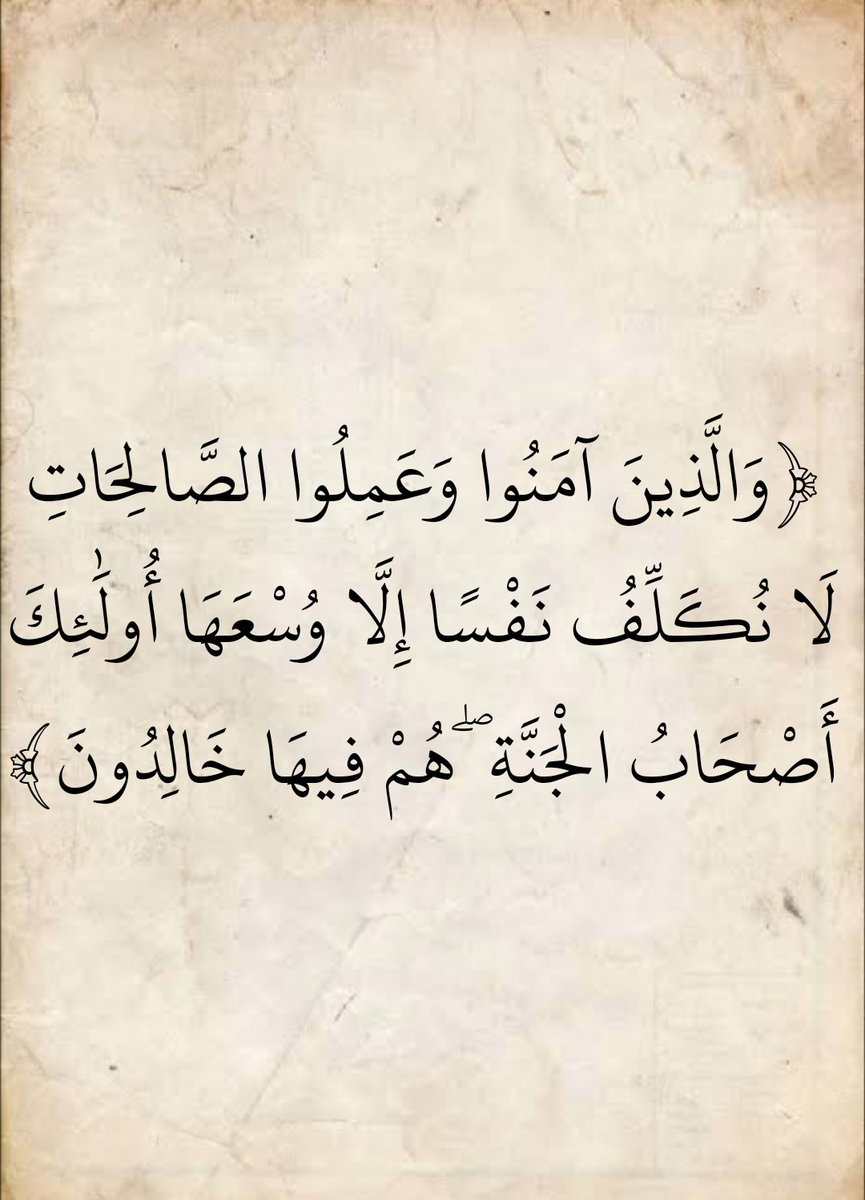 ﴿وَالَّذِينَ آمَنُوا وَعَمِلُوا الصَّالِحَاتِ
لَا نُكَلِّفُ نَفْسًا إِلَّا وُسْعَهَا أُولَٰئِكَ
أَصْحَابُ الْجَنَّةِ ۖ هُمْ فِيهَا خَالِدُونَ﴾